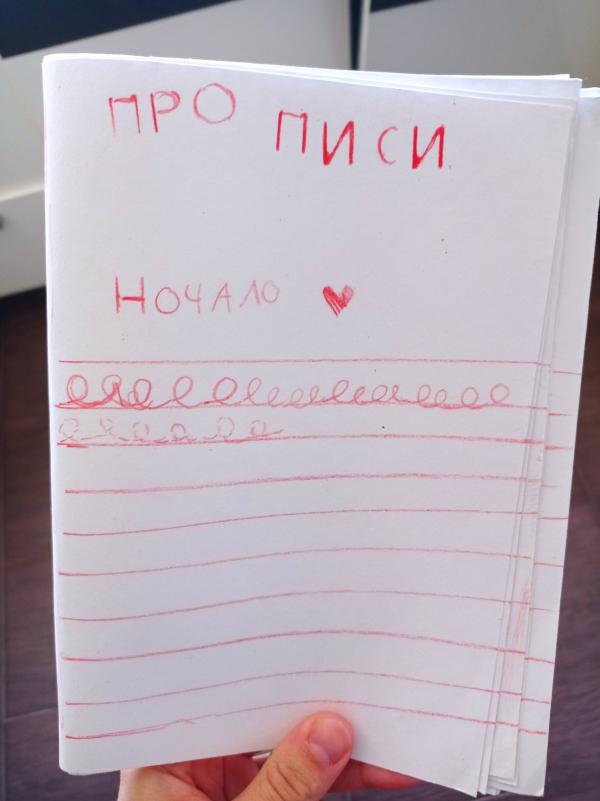 ПРОПИСИ
НОЧАЛО